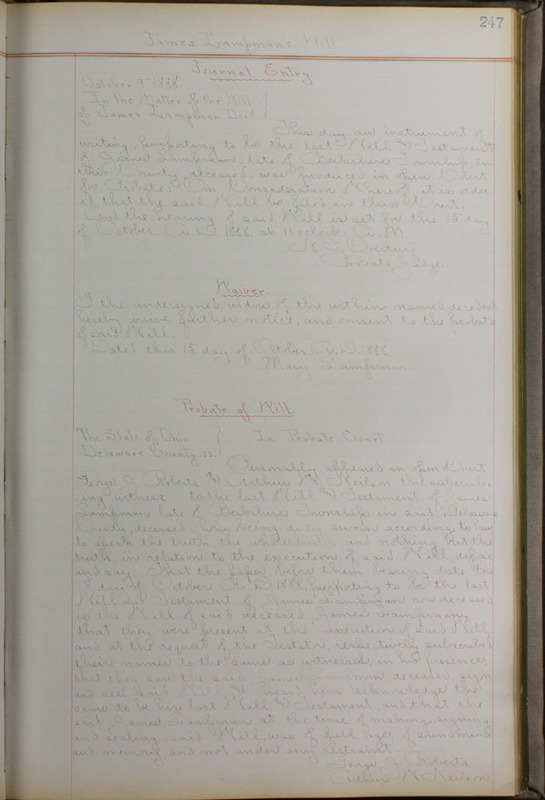 247
James Lampman's Will.
Journal Entry
October 9" 1888.
In the Matter of the Will
of James Lampman Decd
This day an instrument of
writing, purporting to be the last Will and Testament
of James Lampman, late of Berkshire Township, in
this County, deceased, was produced in open Court
for Probate. On Consideration Whereof, it is order-
ed that the said Will be filed in this Court.
And the hearing of said Will is set for the 15 day
of October A. D. 1888, at 11 o'clock A. M.
Probate Judge.
Waiver.
I the undersigned widow of the within named decedent
hereby waive further notice, and consent to the probate
of said Will.
Dated this 15 day of October, A. D. 1888.
Mary Lampman
Probate of Will.
The State of Ohio
Delaware County, ss.
In Probate Court.
Personally appeared in open Court
George J. Roberts and Arthur W. Neilson the subscrib-
ing witness to the last Will and Testament of James
Lampman late of Berkshire Township in said Delaware
County, deceased, who being duly sworn according to law
to speak the truth the whole truth and nothing but the
truth, in relation to the execution of said Will, depose
and say: That the paper before them bearing date the
day of October A. D. 1888, purporting to be the last
Will and Testament of James Lampman now deceased
is the Will of said deceased James Lampman,
that they were present at the execution of said Will,
and at the request of the Testator, respectively subscribed
their names to the same as witnesses, in his presence,
that they saw the said James Lampman deceased, sign
and seal said Will and heard him acknowledge the
same to be his last Will and Testament, and that the
said James Lampman at the time of making, signing
and sealing said Will, was of full age, of sound mind
and memory and not under any restraint.
George J. Roberts
Arthur W. Neilson